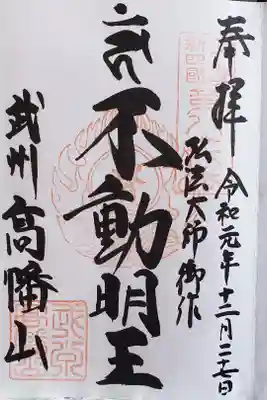 奉拝
令和元年十二月二七日
弘法大師御作
不動明王
武州高幡山